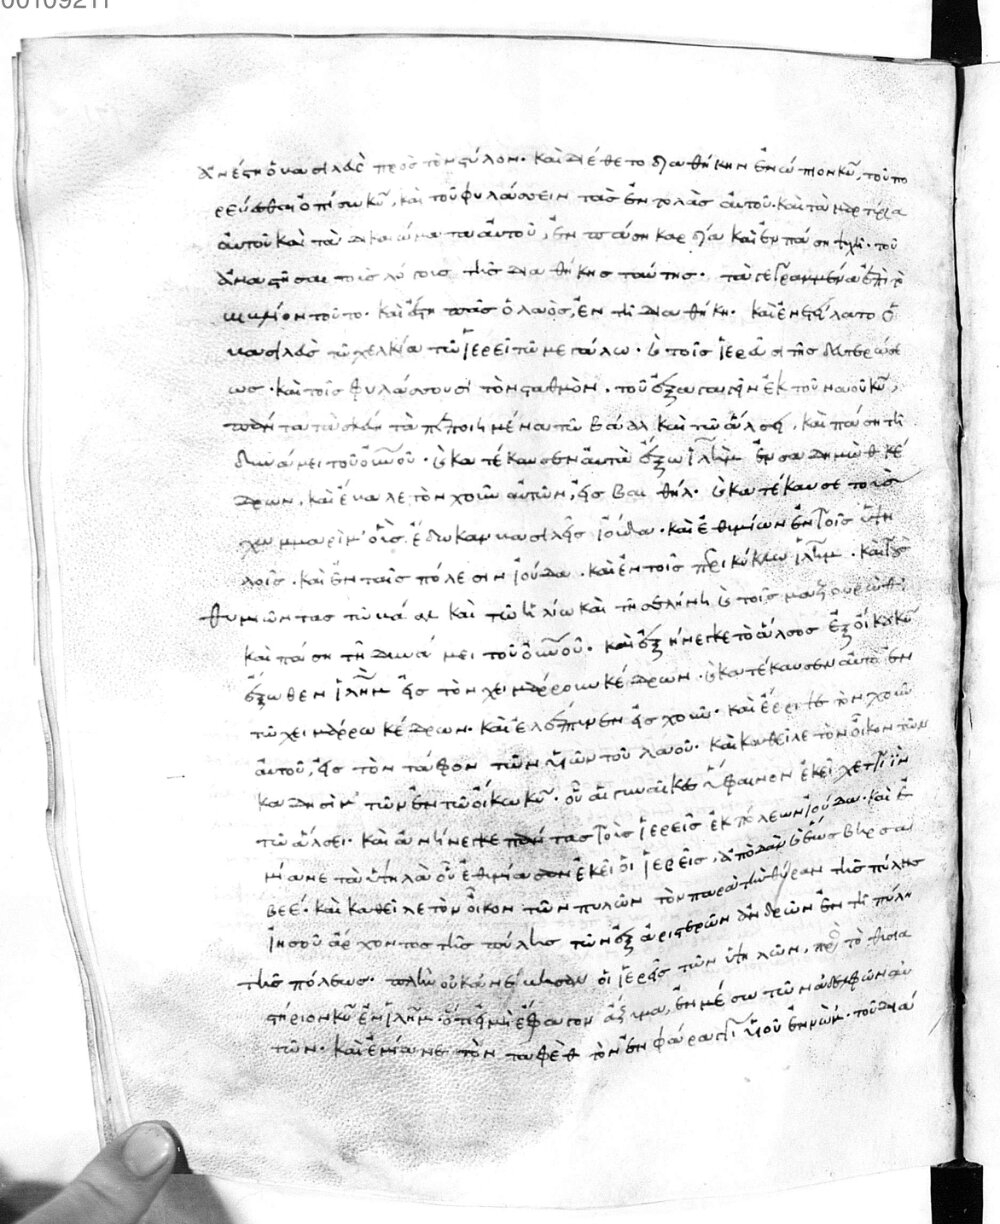 00109211
ἀνέστη ὁ βασιλεὺς πρὸς τὸν στύλον· καὶ διέθετο διαθήκην ἐνώπιον κυ, τοῦ πο
ρεύεσθαι ὀπίσω κυ, καὶ τοῦ φυλάσσειν τὰς ἐντολὰς αὐτοῦ· καὶ τὰ μαρτύρια
αὐτοῦ καὶ τὰ δικαιώματα αὐτοῦ, ἐν πάση καρδία καὶ ἐν πάση ψυχῆ· τοῦ
ἀναστῆσαι τοὺς λόγους τῆς διαθήκης ταύτης· τὰ γεγραμμένα ἐπὶ τὸ
βιβλίον τοῦτο· καὶ ἔστη πᾶς ὁ λαὸς, ἐν τῆ διαθήκη· καὶ ἐνετείλατο ὁ
βασιλεὺς τῶ χελκία τῶ ἱερεῖ τῶ μεγάλω· καὶ τοῖς ἱερεῦσι τῆς δευτερώσε
ως· καὶ τοῖς φυλάσσουσι τὸν σταθμὸν· τοῦ ἐξαγαγεῖν ἐκ τοῦ ναοῦ κυ,
πάντα τὰ σκεύη τὰ πεποιημένα τῶ βάαλ καὶ τῶ ἄλσει, καὶ πάση τῆ
δυνάμει τοῦ οὐνοῦ· καὶ κατέκαυσεν αὐτὰ ἔξω ιλημ ἐν σαδημὼθ κέ
δρων, καὶ ἔβαλε τὸν χοῦν αὐτῶν, εἰς βαιθήλ· καὶ κατέκαυσε τοὺς
χωμαρὶμ· οὓς ἔδωκαν βασιλεῖς ἰούδα· καὶ ἐθυμίων ἐν τοῖς ὑψη
λοῖς· καὶ ἐν ταῖς πόλεσιν ἰούδα· καὶ ἐν τοῖς περικύκλω ιλημ· καὶ τοὺς
θυμιῶντας τῶ βάαλ καὶ τῶ ἡλίω καὶ τῆ σελήνη καὶ τοῖς μαζουρὼθ·
καὶ πάση τῆ δυνάμει τοῦ οὐνοῦ· καὶ ἐξήνεγκε τὸ ἄλσος ἐξ οἴκου κυ
ἔξωθεν ιλημ εἰς τὸν χειμάρρουν κέδρων· καὶ κατέκαυσεν αὐτὸ ἐν
τῶ χειμάρρω κέδρων· καὶ ἐλέπτυνεν εἰς χοῦν· καὶ ἔρριψε τὸν χοῦν
αὐτοῦ, εἰς τὸν τάφον τῶν υἱῶν τοῦ λαοῦ· καὶ καθεῖλε τὸν οἶκον τῶν
καδησὶμ· τῶν ἐν τῶ οἴκω κυ· οὗ αἱ γυναῖκες ὕφαινον ἐκεῖ χεττιὶν
τῶ ἄλσει· καὶ ἀνήνεγκε πάντας τοὺς ἱερεῖς ἐκ πόλεων ἰούδα· καὶ ἐ
μίανε τὰ ὑψηλὰ οὗ ἐθυμίασαν ἐκεῖ οἱ ἱερεῖς, ἀπὸ γαβαὰ καὶ ἕως βηρσα
βεέ· καὶ καθεῖλε τὸν οἶκον τῶν πυλῶν τὸν παρὰ τὴν θύραν τῆς πύλης
ἰησοῦ ἄρχοντος τῆς πόλεως τῶν ἐξ ἀριστερῶν ἀνδρῶν ἐν τῆ πύλη
τῆς πόλεως· πλὴν οὐκ ἀνέβησαν οἱ ἱερεῖς τῶν ὑψηλῶν, πρὸς τὸ θυσια
στήριον κυ ἐν ιλημ· ὅτι εἰ μὴ ἔφαγον ἄζυμα, ἐν μέσω τῶν ἀδελφῶν αὐ
τῶν· καὶ ἐμίανε τὸν ταφὲθ τὸν ἐν φάραγγι υἱοῦ ἐννὼμ· τοῦ διά